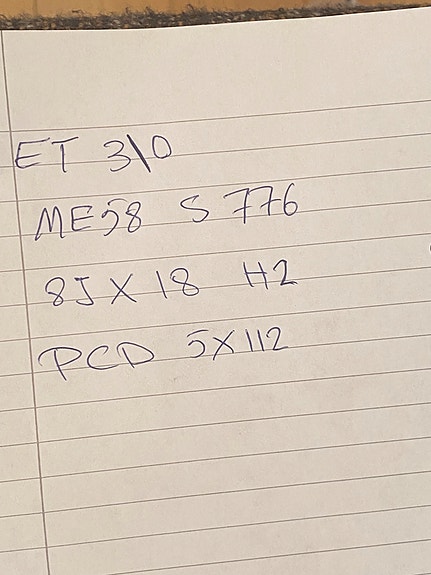 ET 3\0
ME58 S 776
8J X 18 H2
PCD 5X112